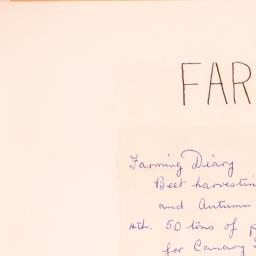 FAR
Farming Diary
Beet harvestin
and Autumn
50 tons of p
for Canary